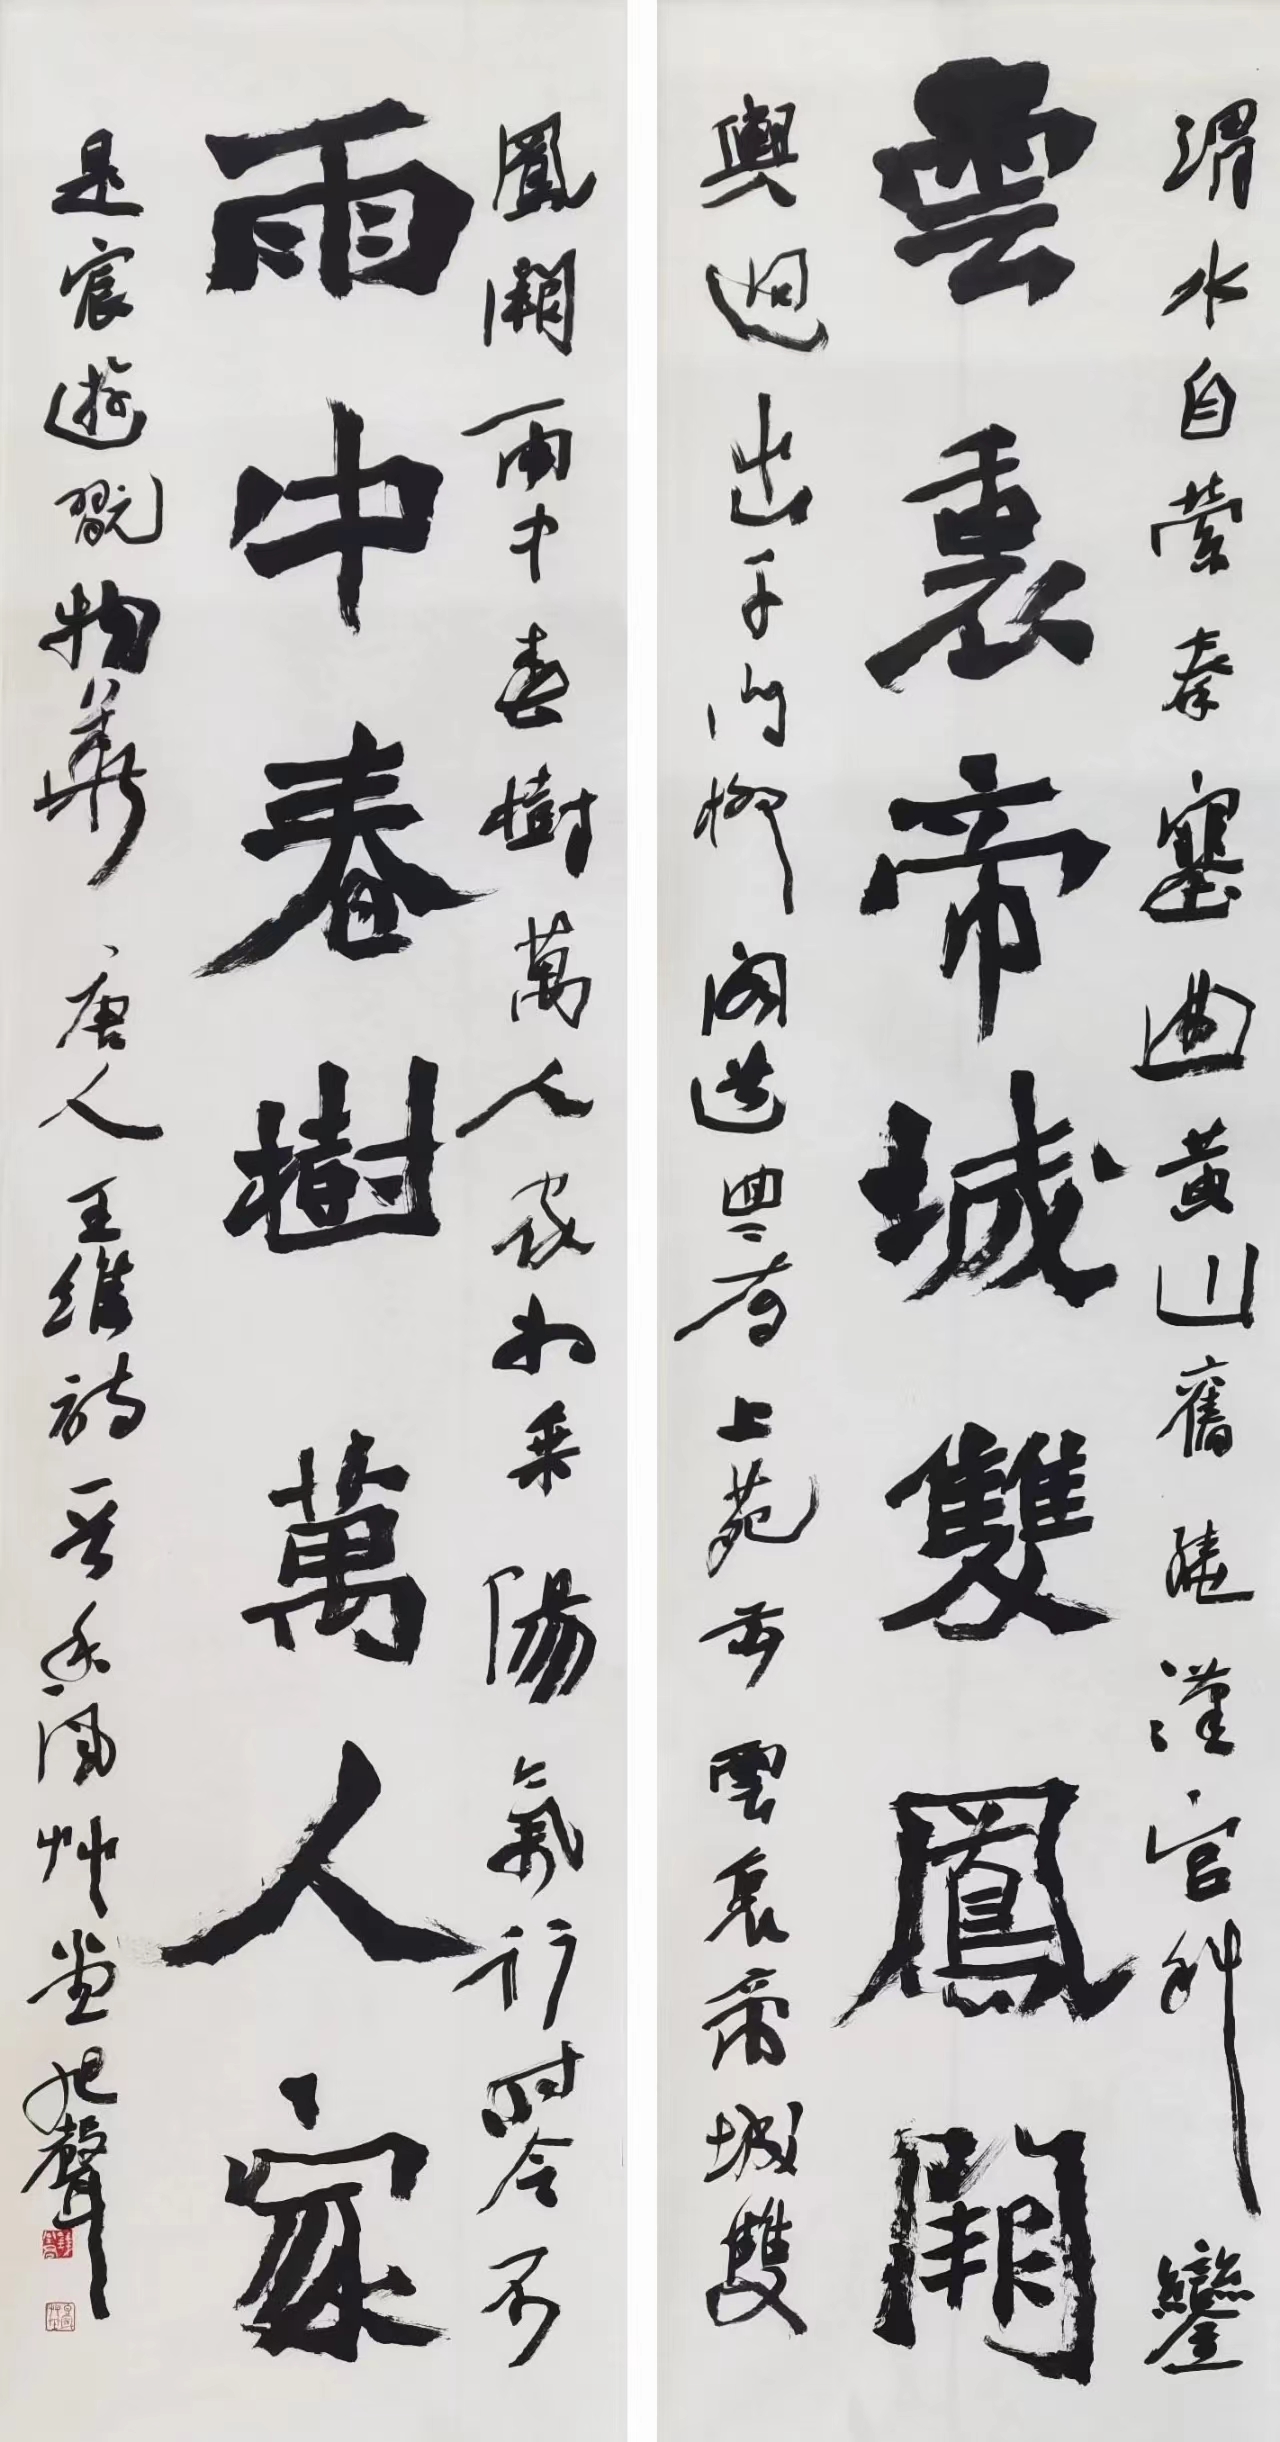 雲裏帝城雙鳳闕
雨中春樹萬人家
渭水自縈秦塞曲黄山舊繞漢宫斜鑾
輿迴出千門柳閣道迴看上苑花雲裏帝城雙
鳳闕雨中春樹萬人家為乘陽氣行時令不
是宸遊翫物華 唐人王維詩 草堂 聲